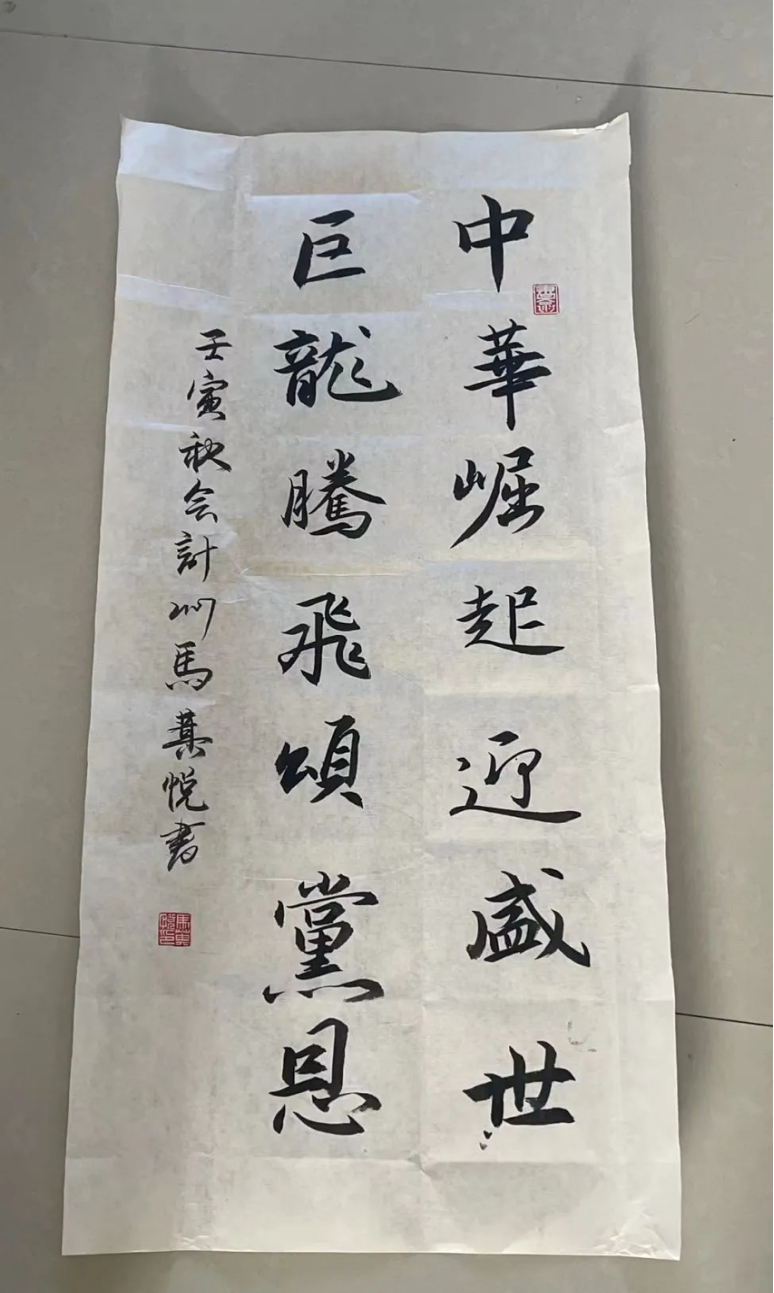 中華崛起迎盛世
巨龍騰飛頌黨恩
壬寅秋会計川馬蓂悅書